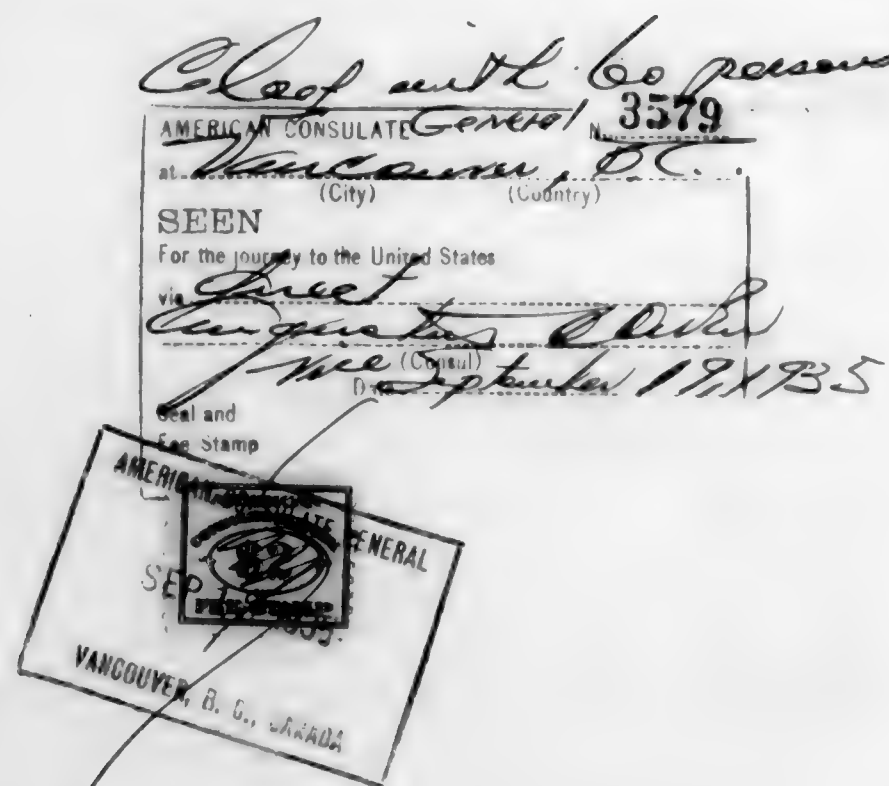 Closed with 60 persons
AMERICAN CONSULATE General No. 3579
at Vancouver, B.C.
(City) (Country)
SEEN
For the journey to the United States
via direct
Augustus
Vice (Consul)
Date September 19, 1935
Seal and
Fee Stamp
AMERICAN CONSULATE GENERAL
SEP
VANCOUVER, B. C., CANADA